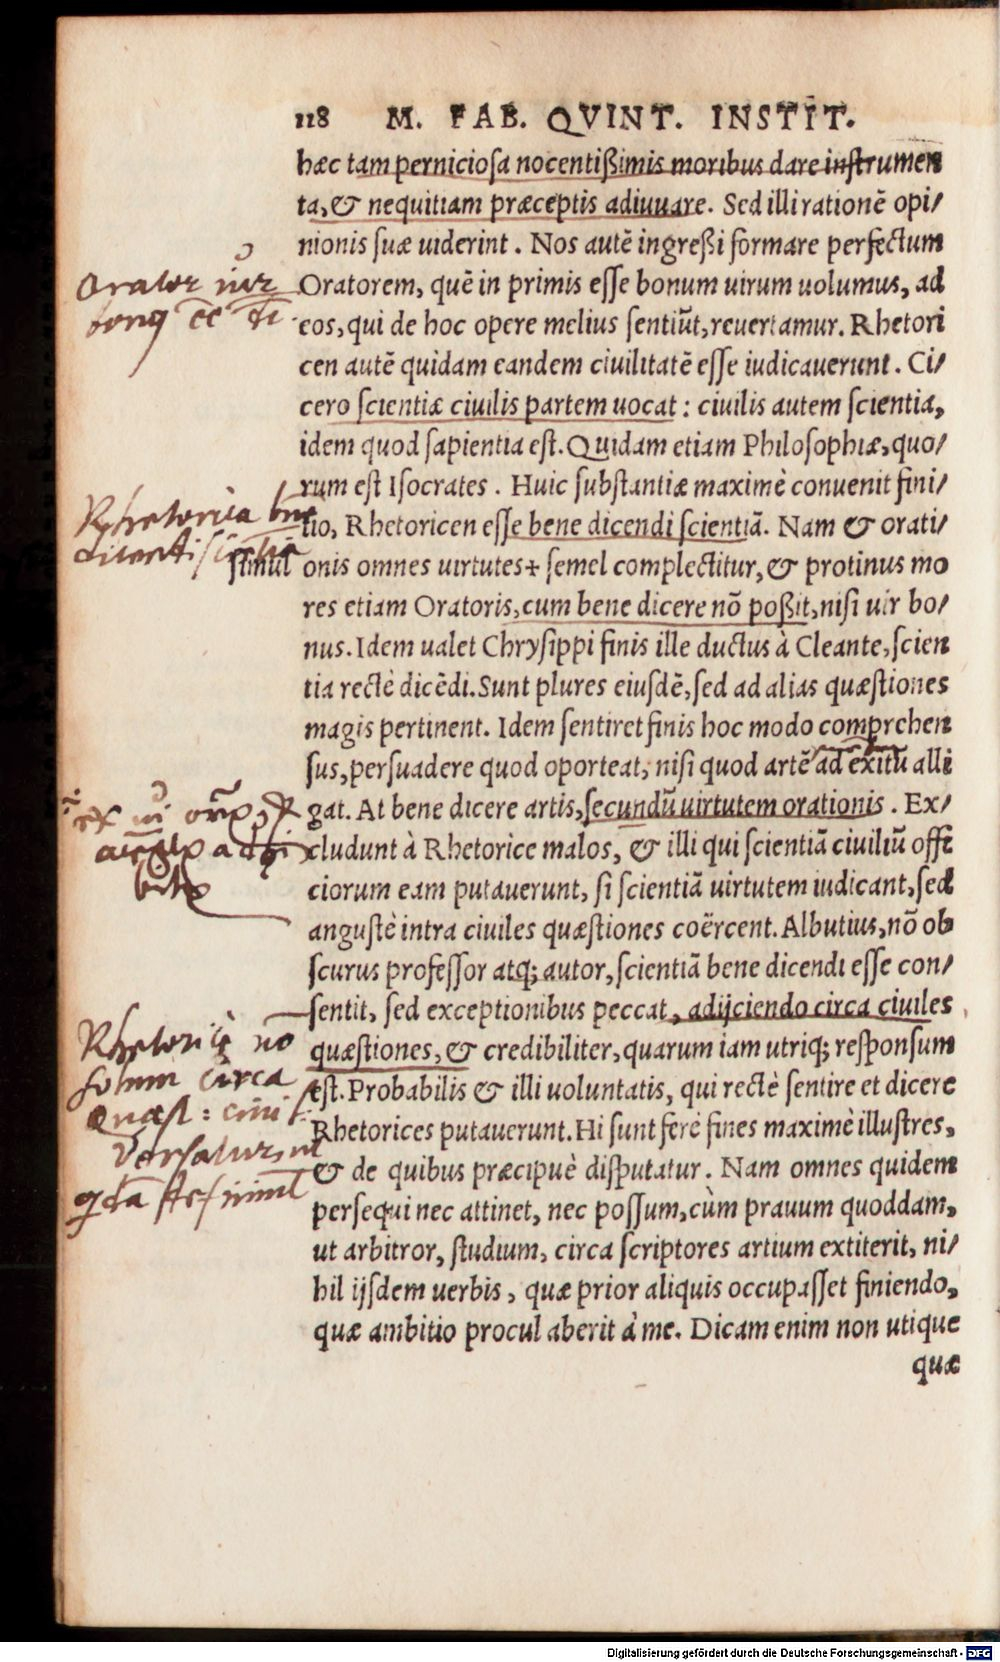 118 M. FAB. QVINT. INSTIT.
hæc tam pernicioſa nocentißimis moribus dare inſtrumen
ta, & nequitiam præceptis adiuuare. Sed illi rationē opi/
nionis ſuæ uiderint. Nos autē ingreßi formare perfectum
Oratorem, quē in primis eſſe bonum uirum uolumus, ad
eos, qui de hoc opere melius ſentiūt, reuertamur. Rhetori
cen autē quidam eandem ciuilitatē eſſe iudicauerunt. Ci/
cero ſcientiæ ciuilis partem uocat: ciuilis autem ſcientia,
idem quod ſapientia eſt. Quidam etiam Philoſophiæ, quo/
rum eſt Iſocrates. Huic ſubſtantiæ maximè conuenit fini/
tio, Rhetoricen eſſe bene dicendi ſcientiā. Nam & orati/
ſimul onis omnes uirtutes+ ſemel complectitur, & protinus mo
res etiam Oratoris, cum bene dicere nō poßit, niſi uir bo/
nus. Idem ualet Chryſippi finis ille ductus à Cleante, ſcien
tia rectè dicēdi. Sunt plures eiuſdē, ſed ad alias quæſtiones
magis pertinent. Idem ſentiret finis hoc modo comprehen
ſus, perſuadere quod oporteat, niſi quod artē ad exitū alli
gat. At bene dicere artis, ſecundū uirtutem orationis. Ex/
cludunt à Rhetorice malos, & illi qui ſcientiā ciuiliū offi
ciorum eam putauerunt, ſi ſcientiā uirtutem iudicant, ſed
anguſtè intra ciuiles quæſtiones coërcent. Albutius, nō ob
ſcurus profeſſor atq; autor, ſcientiā bene dicendi eſſe con/
ſentit, ſed exceptionibus peccat, adijciendo circa ciuiles
quæſtiones, & credibiliter, quarum iam utriq; reſponſum
eſt. Probabilis & illi uoluntatis, qui rectè ſentire et dicere
Rhetorices putauerunt. Hi ſunt ferè fines maximè illuſtres,
& de quibus præcipuè diſputatur. Nam omnes quidem
perſequi nec attinet, nec poſſum, cùm prauum quoddam,
ut arbitror, ſtudium, circa ſcriptores artium extiterit, ni/
hil ijſdem uerbis, quæ prior aliquis occupaſſet finiendo,
quæ ambitio procul aberit à me. Dicam enim non utique
quæ
Orator uir
Rhetorica
Rhetoricē nō
ſolum circa
Quæſt: ciuil
Verſatur, ut
Digitalisierung gefördert durch die Deutsche Forschungsgemeinschaft - DFG